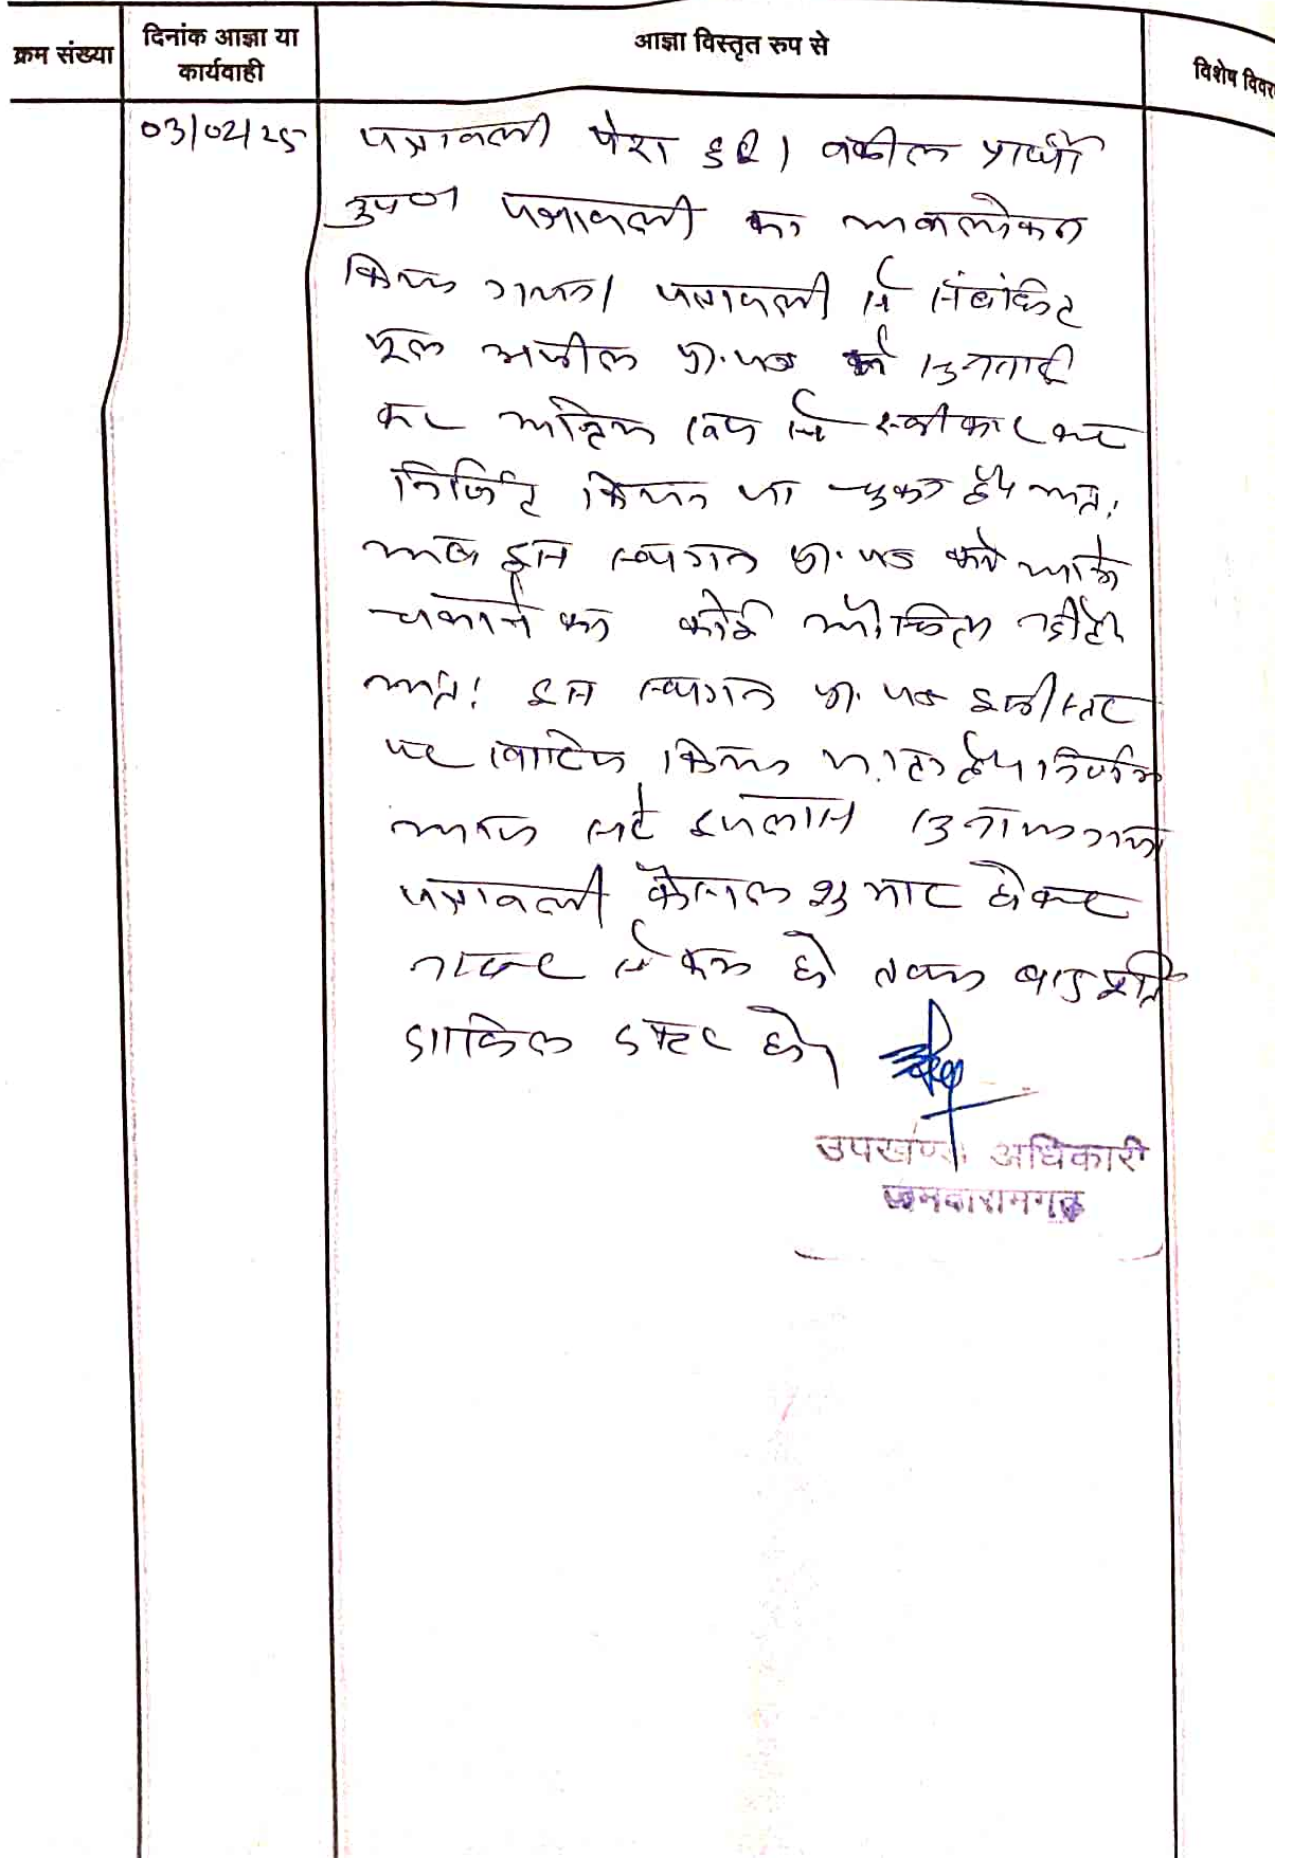 क्रम संख्या
दिनांक आज्ञा या
कार्यवाही
आज्ञा विस्तृत रुप से
विशेष विवर
03/02/25
पत्रावली पेश हुई। वकील प्रार्थी
उप० पत्रावली का अवलोकन
किया गया। पत्रावली से संबंधित
मूल अपील प्रा.पत्र को सुनवाई
कर अंतिम रूप से स्वीकार कर
निर्णित किया जा चुका है। अतः
अब इस स्थगन प्रा.पत्र को आगे
चलाने का कोई औचित्य नहीं है।
अतः इस स्थगन प्रा.पत्र इसी स्तर
पर खारिज किया जाता है। निर्णय
आज सरे इजलास सुनाया गया
पत्रावली फैसल शुमार होकर
नम्बर से कम हो बाद
दाखिल दफ्तर हो।
उपखण्ड अधिकारी
जमवारामगढ़